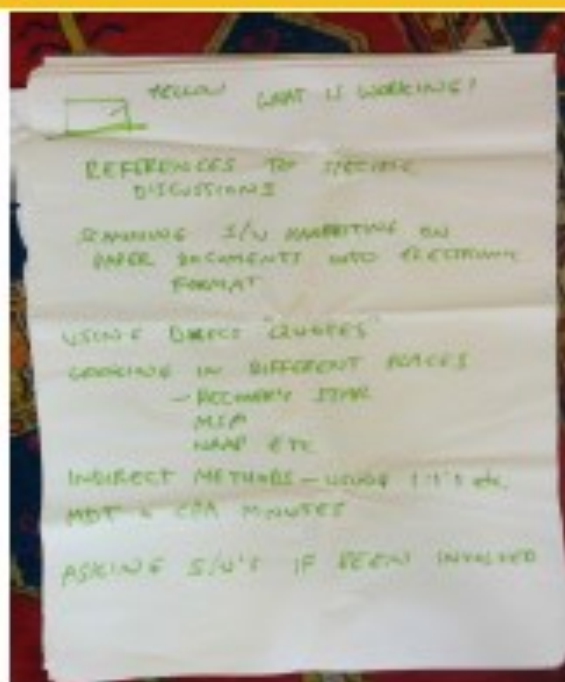 YELLOW WHAT IS WORKING!
REFERENCES TO SPECIFIC
DISCUSSIONS
SCANNING S/U HANDWRITING ON
PAPER DOCUMENTS INTO ELECTRONIC
FORMAT
USING DIRECT "QUOTES"
LOOKING IN DIFFERENT PLACES
- RECOVERY STAR
MSP
ETC
INDIRECT METHODS - USING 1:1'S etc
MDT & CPA MINUTES
ASKING S/U'S IF BEEN INVOLVED